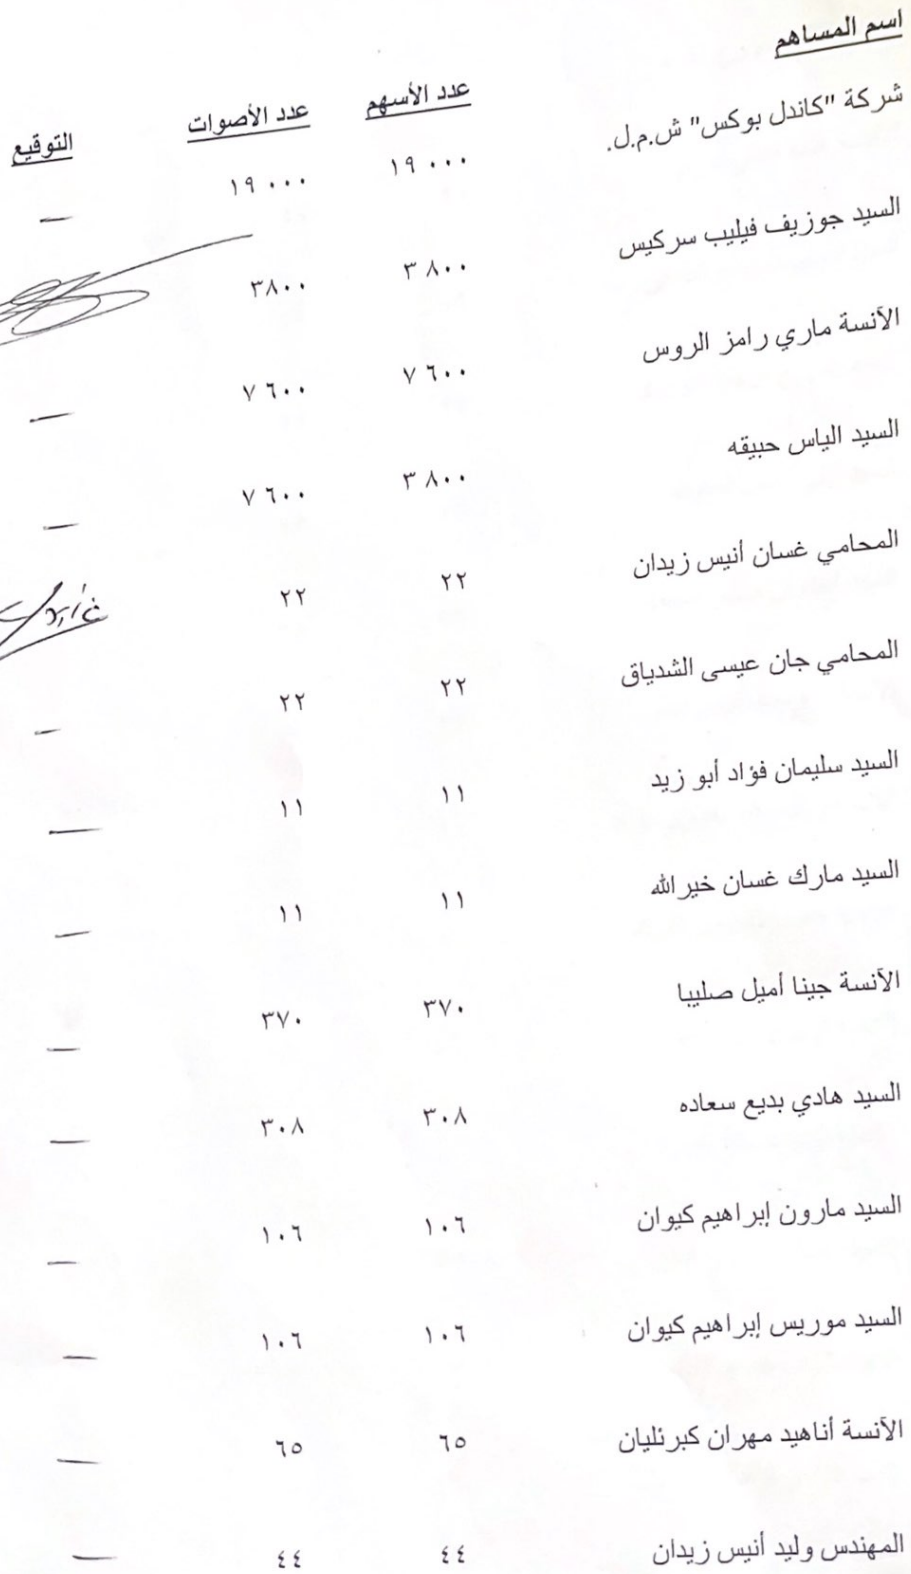 اسم المساهم عدد الأسهم عدد الأصوات التوقيع
شركة "كاندل بوكس" ش.م.ل. ١٩ ٠٠٠ ١٩ ٠٠٠ —
السيد جوزيف فيليب سركيس ٣ ٨٠٠ ٣٨٠٠
الآنسة ماري رامز الروس ٧ ٦٠٠ ٧ ٦٠٠ —
السيد الياس حبيقه ٣ ٨٠٠ ٧ ٦٠٠ —
المحامي غسان أنيس زيدان ٢٢ ٢٢
المحامي جان عيسى الشدياق ٢٢ ٢٢ —
السيد سليمان فؤاد أبو زيد ١١ ١١ —
السيد مارك غسان خيرالله ١١ ١١ —
الآنسة جينا أميل صليبا ٣٧٠ ٣٧٠ —
السيد هادي بديع سعاده ٣٠٨ ٣٠٨ —
السيد مارون إبراهيم كيوان ١٠٦ ١٠٦ —
السيد موريس إبراهيم كيوان ١٠٦ ١٠٦ —
الآنسة أناهيد مهران كبرئليان ٦٥ ٦٥ —
المهندس وليد أنيس زيدان ٤٤ ٤٤ —